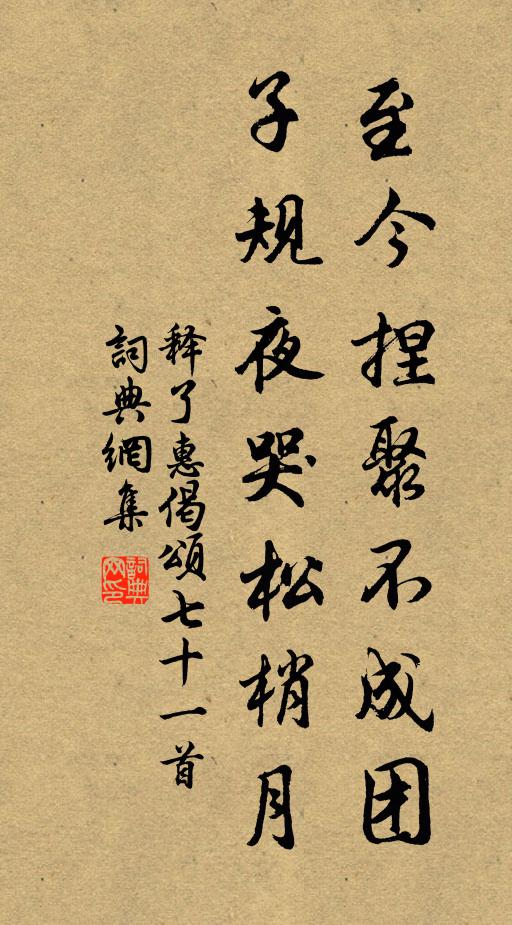 至今捏聚不成团
子规夜哭松梢月
释了惠偈頌七十一首
詞典網集
詞典网印